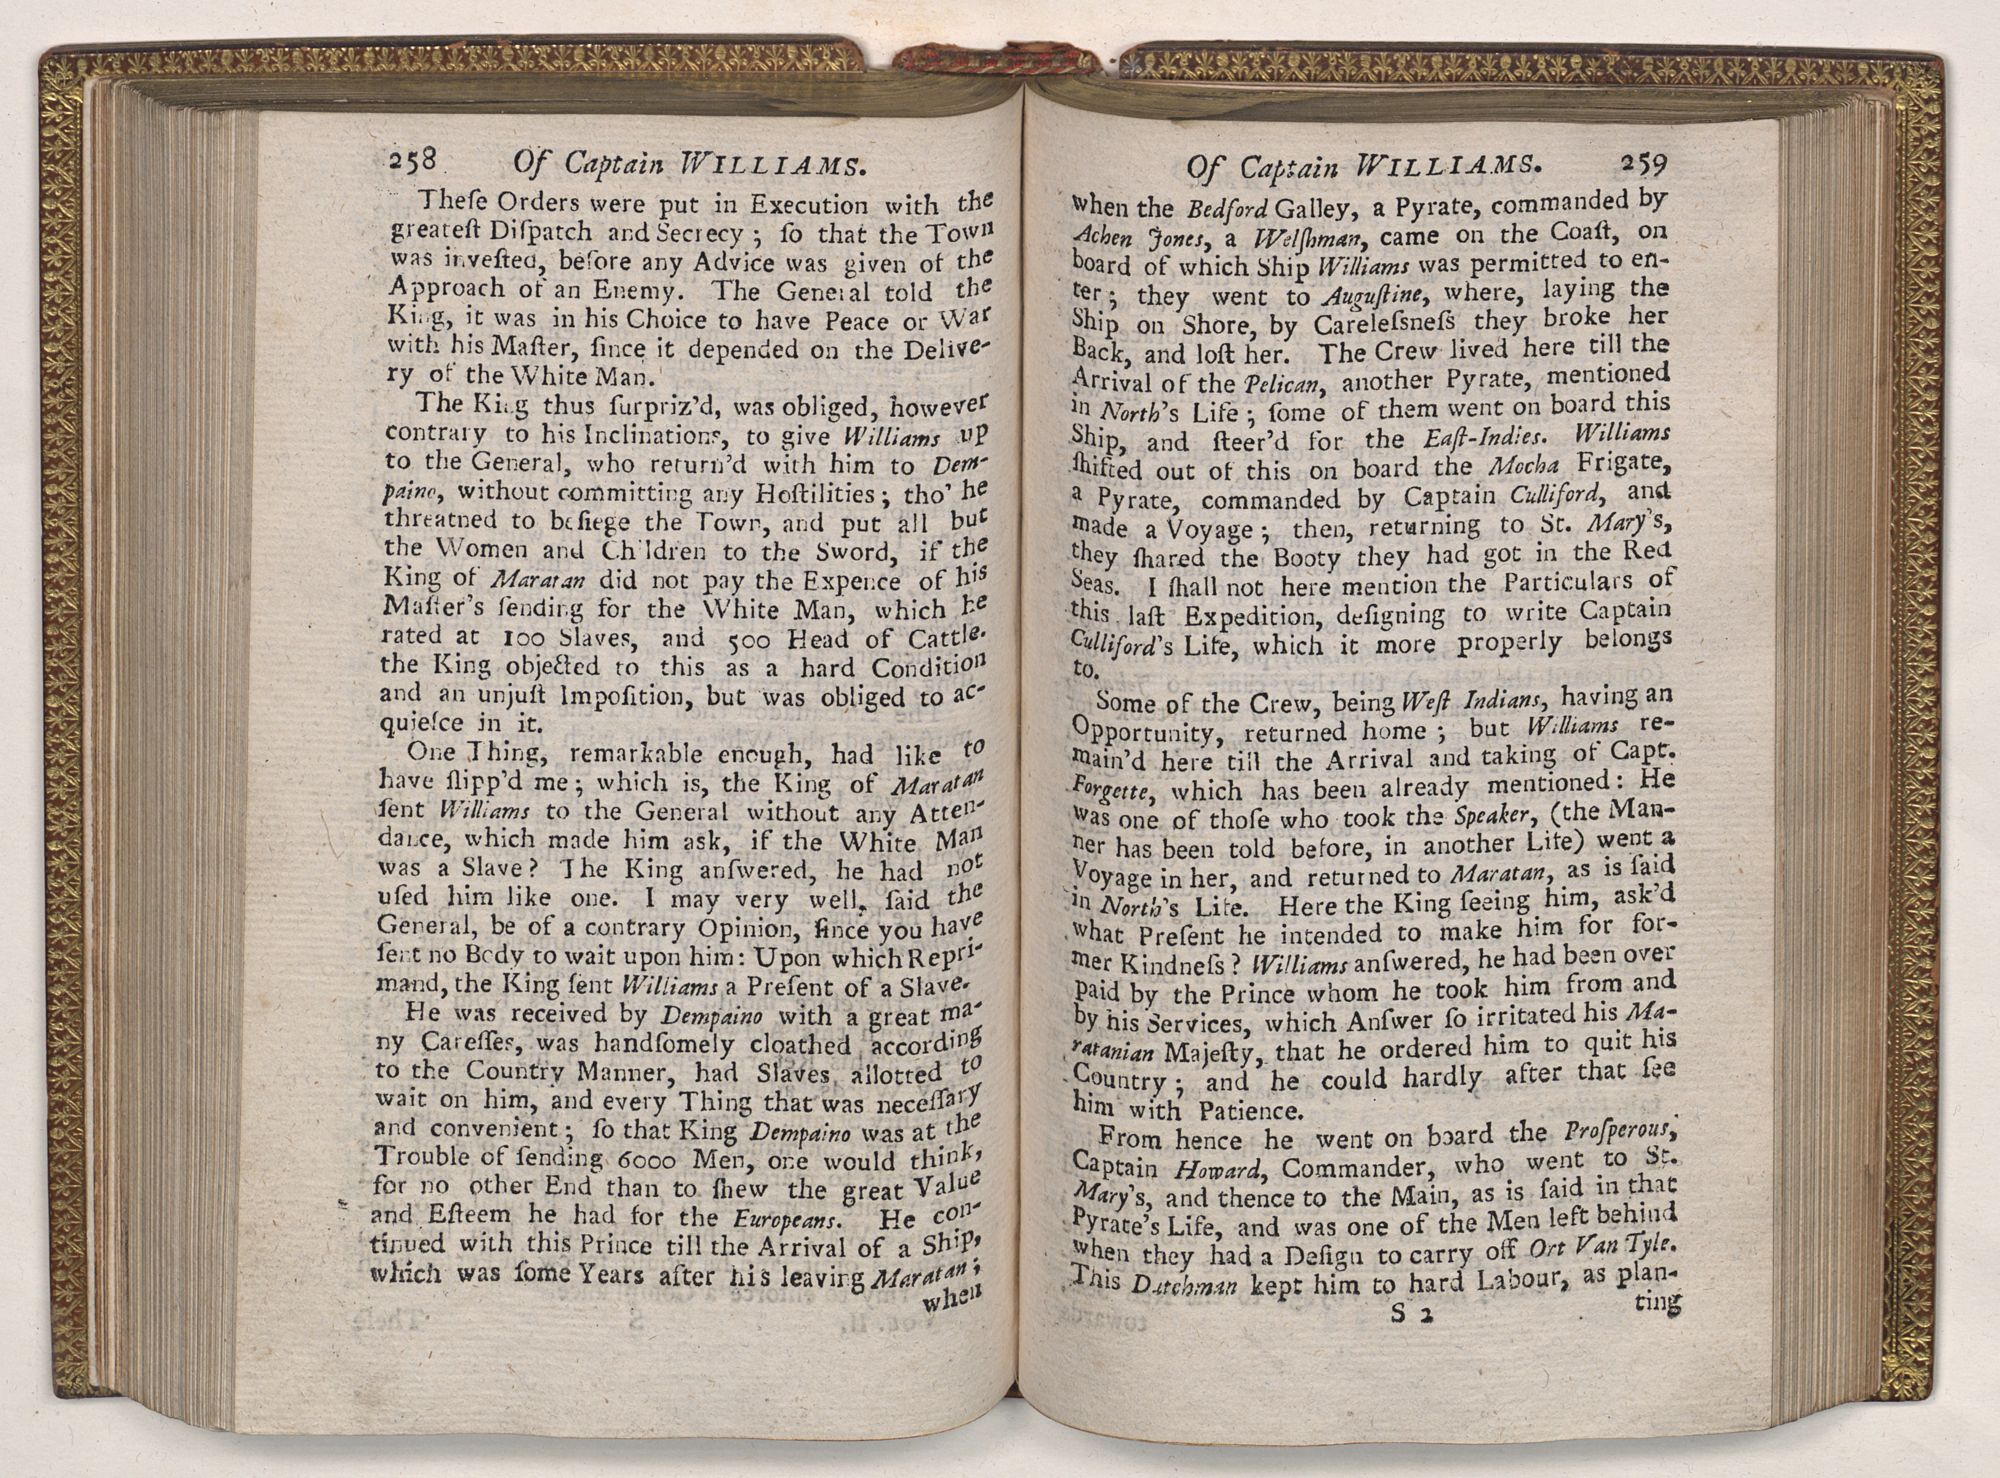 258 Of Captain WILLIAMS.
Theſe Orders were put in Execution with the
greateſt Diſpatch and Secrecy ; ſo that the Town
was inveſted, before any Advice was given of the
Approach of an Enemy. The General told the
King, it was in his Choice to have Peace or War
with his Maſter, ſince it depended on the Delive-
ry of the White Man.
The King thus ſurpriz'd, was obliged, however
contrary to his Inclinations, to give Williams up
to the General, who return'd with him to Dem-
paino, without committing any Hoſtilities ; tho' he
threatned to beſiege the Town, and put all but
the Women and Children to the Sword, if the
King of Maratan did not pay the Expence of his
Maſter's ſending for the White Man, which he
rated at 100 Slaves, and 500 Head of Cattle.
the King objected to this as a hard Condition
and an unjuſt Impoſition, but was obliged to ac-
quieſce in it.
One Thing, remarkable enough, had like to
have ſlipp'd me ; which is, the King of Maratan
ſent Williams to the General without any Atten-
dance, which made him ask, if the White Man
was a Slave ? The King anſwered, he had not
uſed him like one. I may very well, ſaid the
General, be of a contrary Opinion, ſince you have
ſent no Body to wait upon him : Upon which Repri-
mand, the King ſent Williams a Preſent of a Slave.
He was received by Dempaino with a great ma-
ny Careſſes, was handſomely cloathed according
to the Country Manner, had Slaves allotted to
wait on him, and every Thing that was neceſſary
and convenient ; ſo that King Dempaino was at the
Trouble of ſending 6000 Men, one would think,
for no other End than to ſhew the great Value
and Eſteem he had for the Europeans. He con-
tinued with this Prince till the Arrival of a Ship,
which was ſome Years after his leaving Maratan ;
when
Of Captain WILLIAMS. 259
when the Bedford Galley, a Pyrate, commanded by
Achen Jones, a Welſhman, came on the Coaſt, on
board of which Ship Williams was permitted to en-
ter ; they went to Auguſtine, where, laying the
Ship on Shore, by Careleſsneſs they broke her
Back, and loſt her. The Crew lived here till the
Arrival of the Pelican, another Pyrate, mentioned
in North's Life ; ſome of them went on board this
Ship, and ſteer'd for the Eaſt-Indies. Williams
ſhifted out of this on board the Mocha Frigate,
a Pyrate, commanded by Captain Culliford, and
made a Voyage ; then, returning to St. Mary's,
they ſhared the Booty they had got in the Red
Seas. I ſhall not here mention the Particulars of
this laſt Expedition, deſigning to write Captain
Culliford's Life, which it more properly belongs
to.
Some of the Crew, being Weſt Indians, having an
Opportunity, returned home ; but Williams re-
main'd here till the Arrival and taking of Capt.
Forgette, which has been already mentioned : He
was one of thoſe who took the Speaker, (the Man-
ner has been told before, in another Life) went a
Voyage in her, and returned to Maratan, as is ſaid
in North's Life. Here the King ſeeing him, ask'd
what Preſent he intended to make him for for-
mer Kindneſs ? Williams anſwered, he had been over
paid by the Prince whom he took him from and
by his Services, which Anſwer ſo irritated his Ma-
ratanian Majeſty, that he ordered him to quit his
Country ; and he could hardly after that ſee
him with Patience.
From hence he went on board the Proſperous,
Captain Howard, Commander, who went to St.
Mary's, and thence to the Main, as is ſaid in that
Pyrate's Life, and was one of the Men left behind
when they had a Deſign to carry off Ort Van Tyle.
This Dutchman kept him to hard Labour, as plan-
S 2 ting